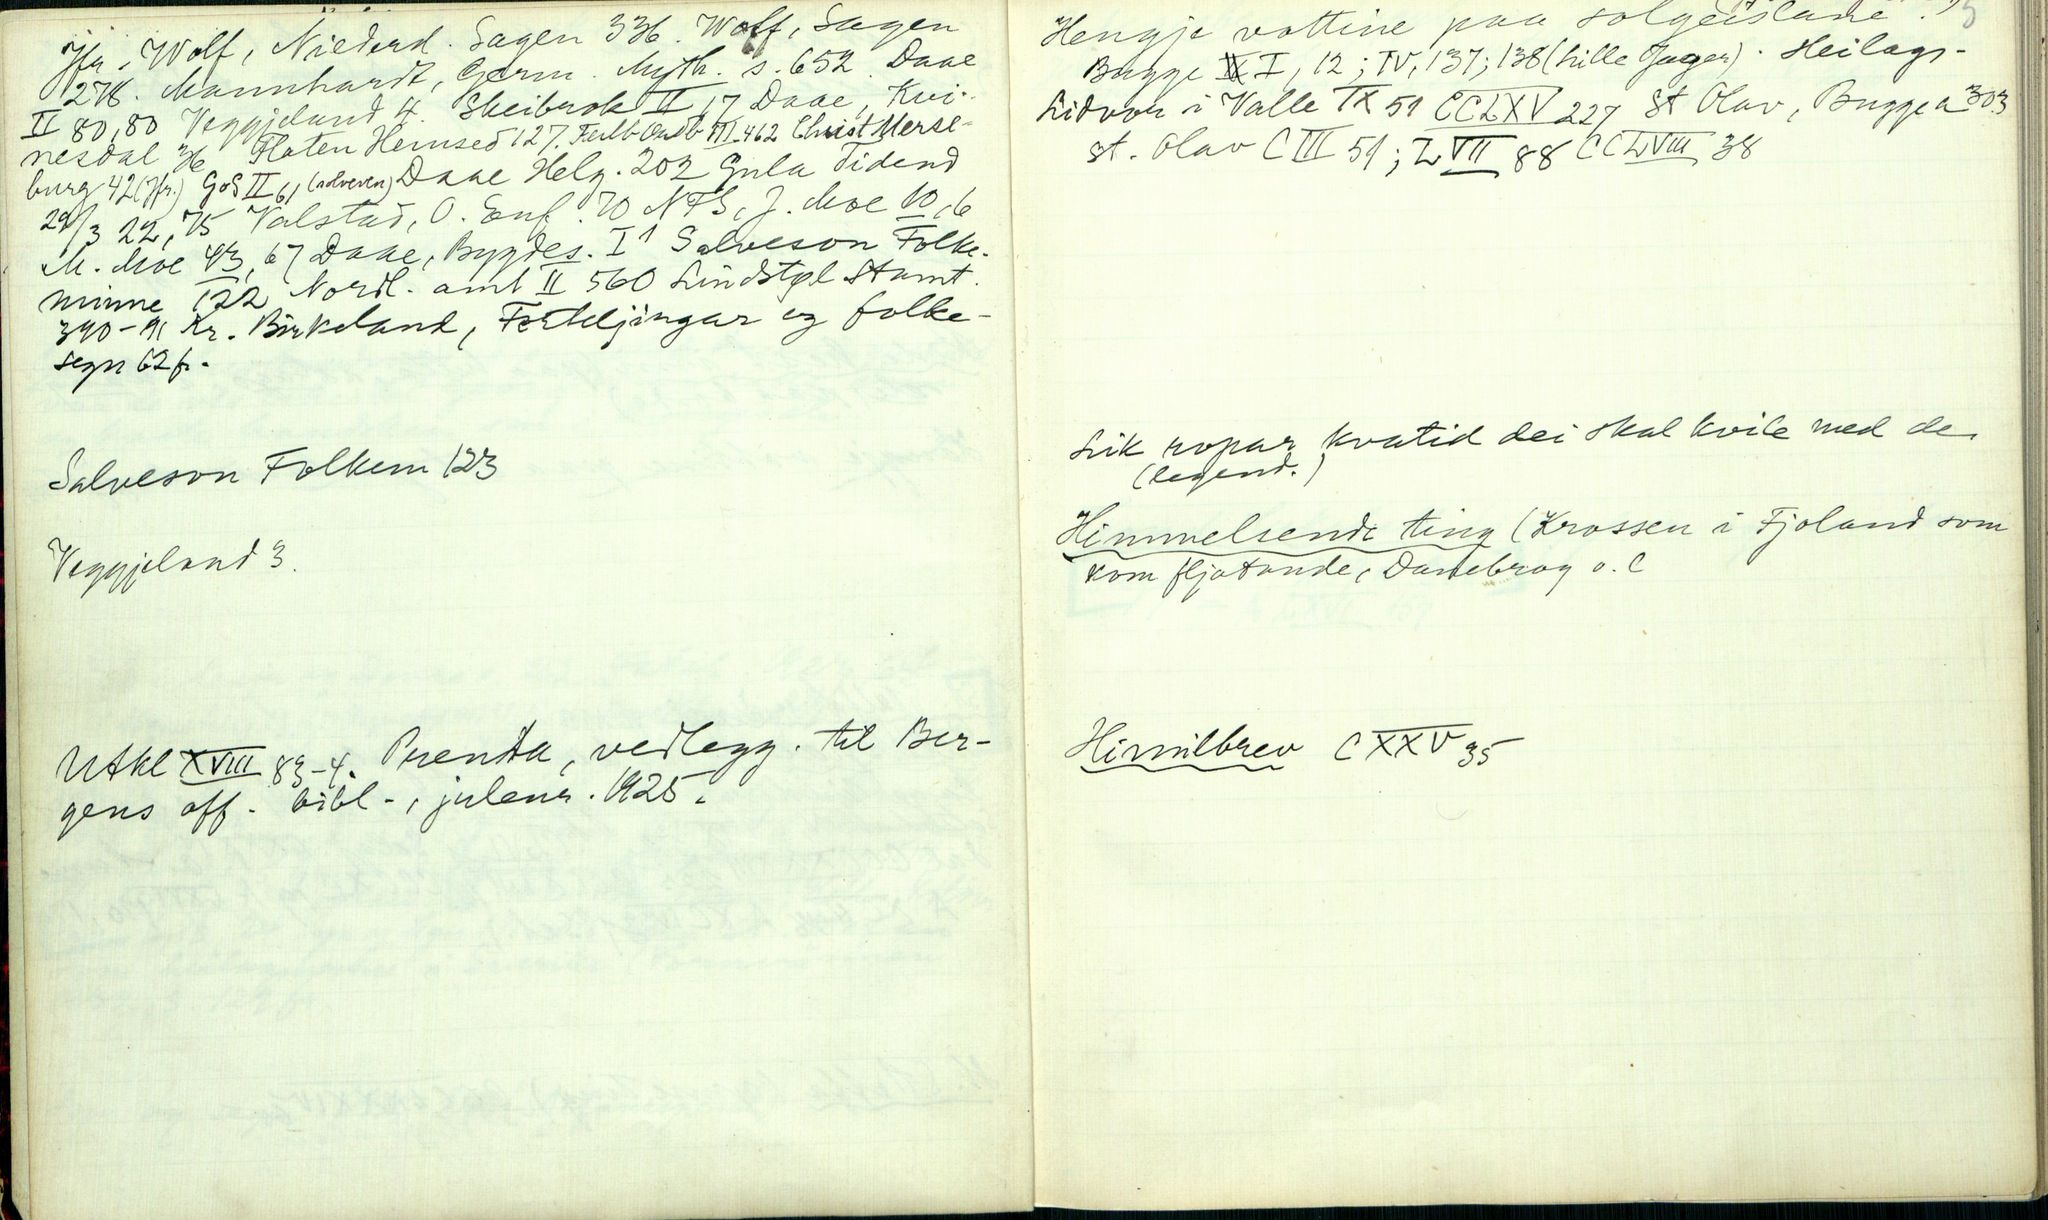 Jfr. Wolf, Niederd. Sagen 336. Wolf, Sagen
278. Mannhardt, Germ. Myth. s. 652. Daae
II 80, 80 Veggjeland 4. Skeibrok II, 17 Daae, Kvi-
nesdal 36 Flaten Hemsed 127. Feilb Ordb III 462 Christ Merse-
burg 42 (Jfr.) GoS II 61 (solveven) Daae Helg. 202 Gula Tidend
29/3 22, 75 Valstad, O. Enf. 70 NFS, J. Moe 10, 6
M. Moe 43, 67 Daae, Bygdes. I 1 Salveson Folke-
minne 122 Nordl. amt II 560 Lindstøl Stamt.
390-91 Kr. Birkeland, Forteljingar og folke-
segn 62 fr.
Salveson Folkem 123
Veggjeland 3.
Utkl XVIII 83-4. Prenta, vedlegg. til Ber-
gens off. bibl., julenr. 1925.
Hengje vottine paa solgeislane.
5
Bugge I, 12; IV, 137; 138 (Lille Jager). Heilags-
Lidvor i Valle IX 51 CCLXV 227 St Olav, Bugge a 303
st. Olav CIII 51; LVII 88 CCLVIII 38
Lik ropar kvatid dei skal kvile med de
(legend.)
Himmelsende ting (Krossen i Fjoland som
kom fljotande, Danebrog o. l
Himilbrev CXXV 35